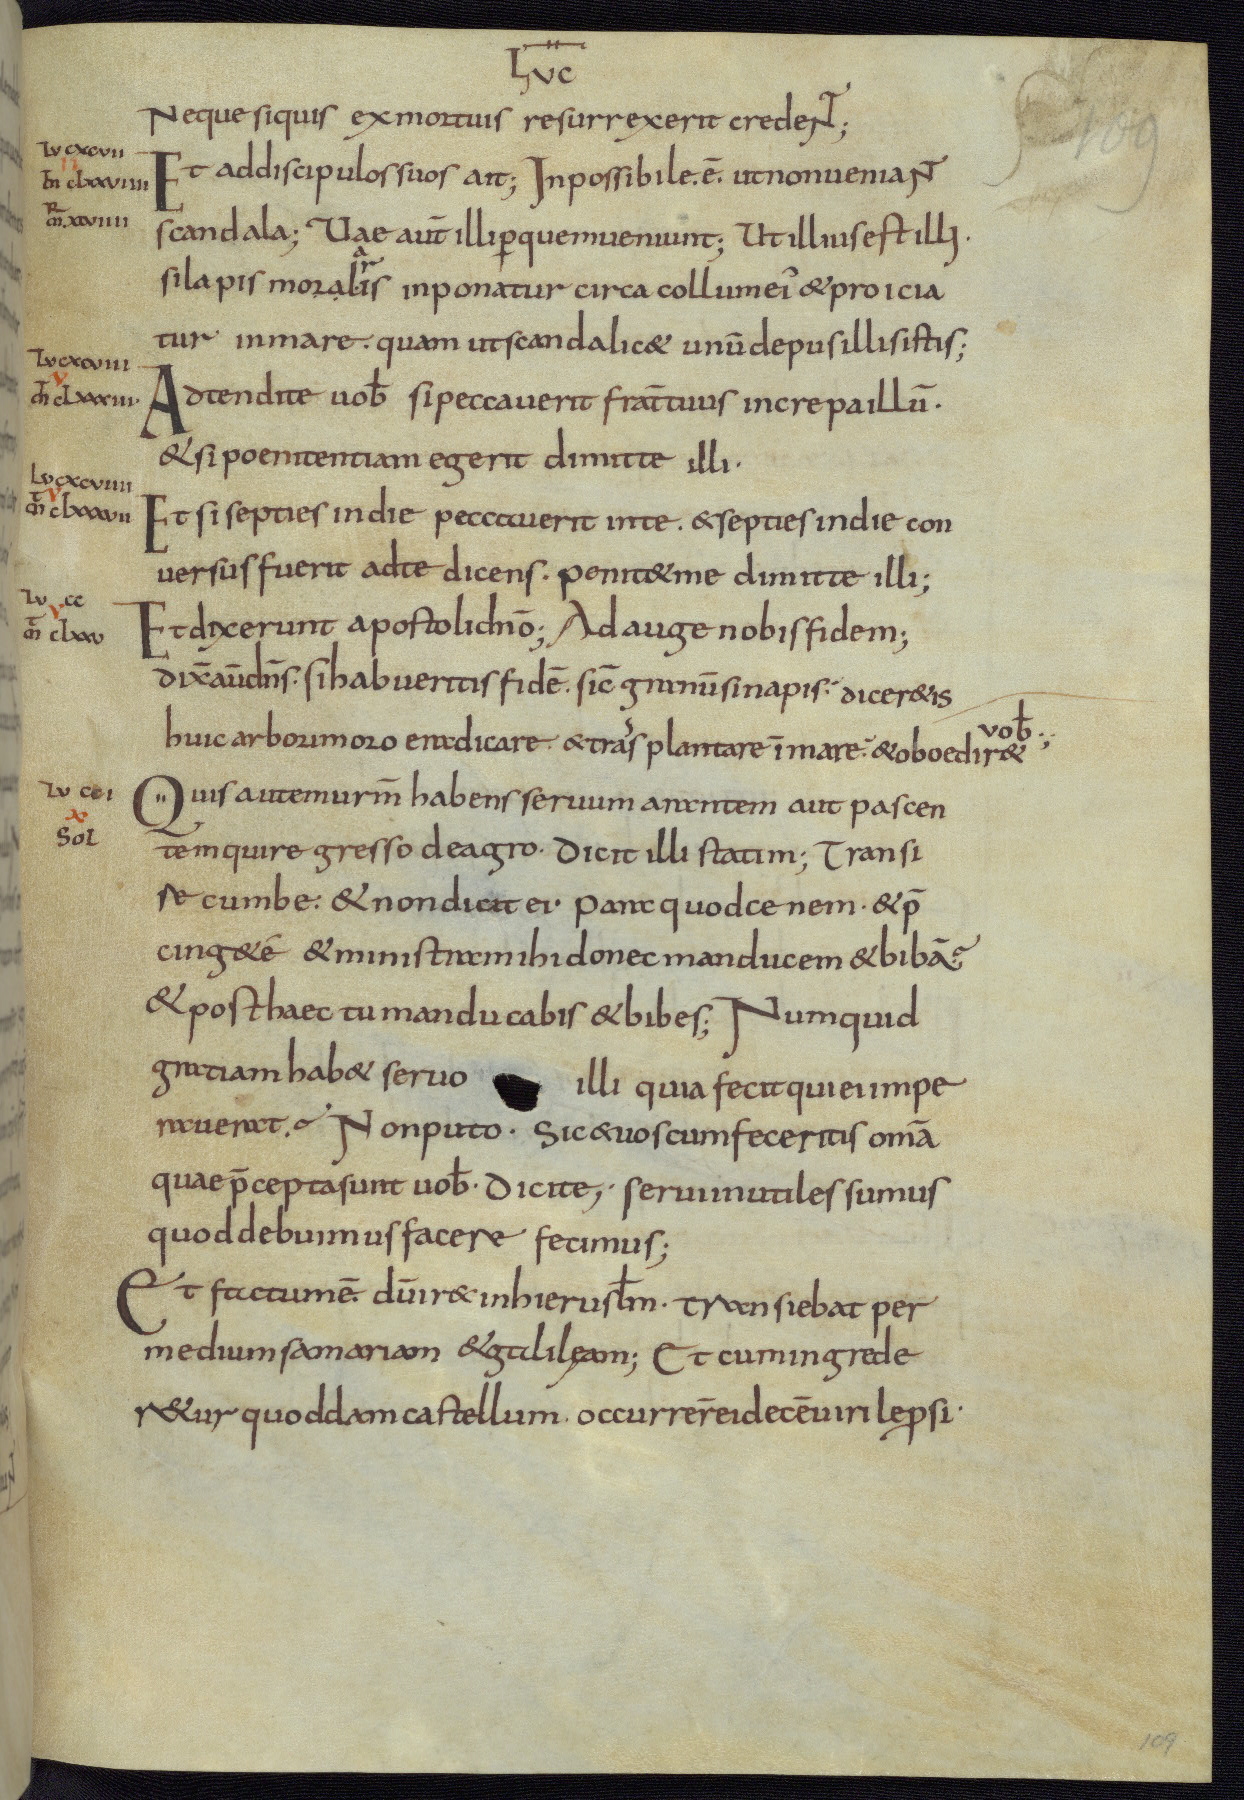 LUC
109
Neque siquis ex mortuis resurrexerit credeNT;
Lv cxcvii
II
Et ad discipulos suos ait; Inpossibile .ē. ut non ueniaNT
mr. xcviiii
scandala; Uae aut̄ illi ꝑ quem ueniunt; Utilius est illi.
si lapis moralis ar inponatur circa collum ei' & proicia
tur in mare. quam ut scandalic& unū de pusillis istis;
Lv cxcviii
V
m̄ clxxxiii.
Adtendite uob̄ si peccauerit frat̄ tuus increpa illū.
& si poenitentiam egerit dimitte illi.
Lv cxcviiii
V
m̄ clxxxvii
Et si septies in die peccauerit in te. & septies in die con
uersus fuerit ad te dicens. penit& me dimitte illi;
Lv cc
V
m̄ clxxv
Et dixerunt apostoli dn̄o; Adauge nobis fidem;
dix̄ aut̄ dn̄s. si habueritis fidē. sic̄ granū sinapis. dicer&is
huic arbori moro eradicare. & trāsplantare ī mare. & oboedir& vob̄.;
Lv cci
x
Sol
Quis autem urm̄ habens seruum arantem aut pascen
tem qui regresso de agro. Dicit illi statim; Transi
recumbe: & non dicit ei. Para quod cenem. & p̄
cing& é & ministra mihi donec manducem & bibā.
& post haec tu manducabis & bibes; Numquid
gratiam hab& seruo illi quia fecit quiei impe
rauerat. Non puto. Sic & uos cum feceritis omā
quae p̄cepta sunt uob̄. Dicite; serui inutiles sumus
quod debuimus facere fecimus;
Et factum ē. dūir& in hierusłm. transiebat per
medium samariam & galilęam; Et cum ingrede
r&ur quoddam castellum. occurrer̄ ei decē uiri lepsi.
109